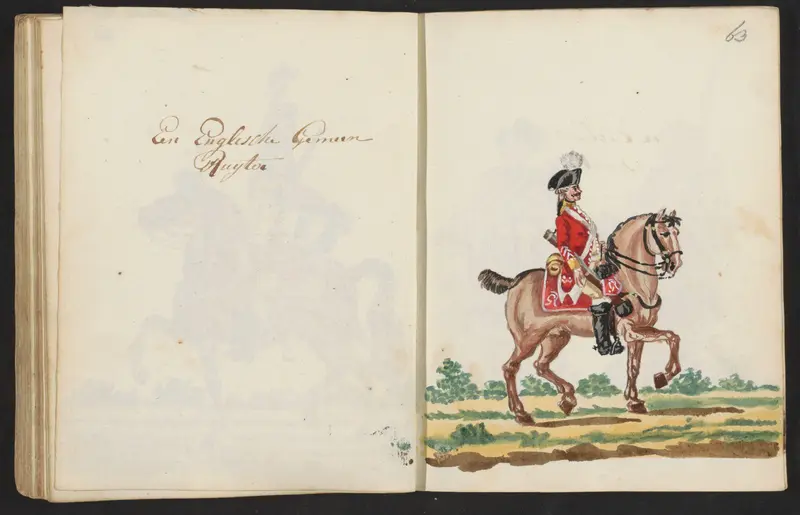 Een Englische Gemeen
Ruyter
63